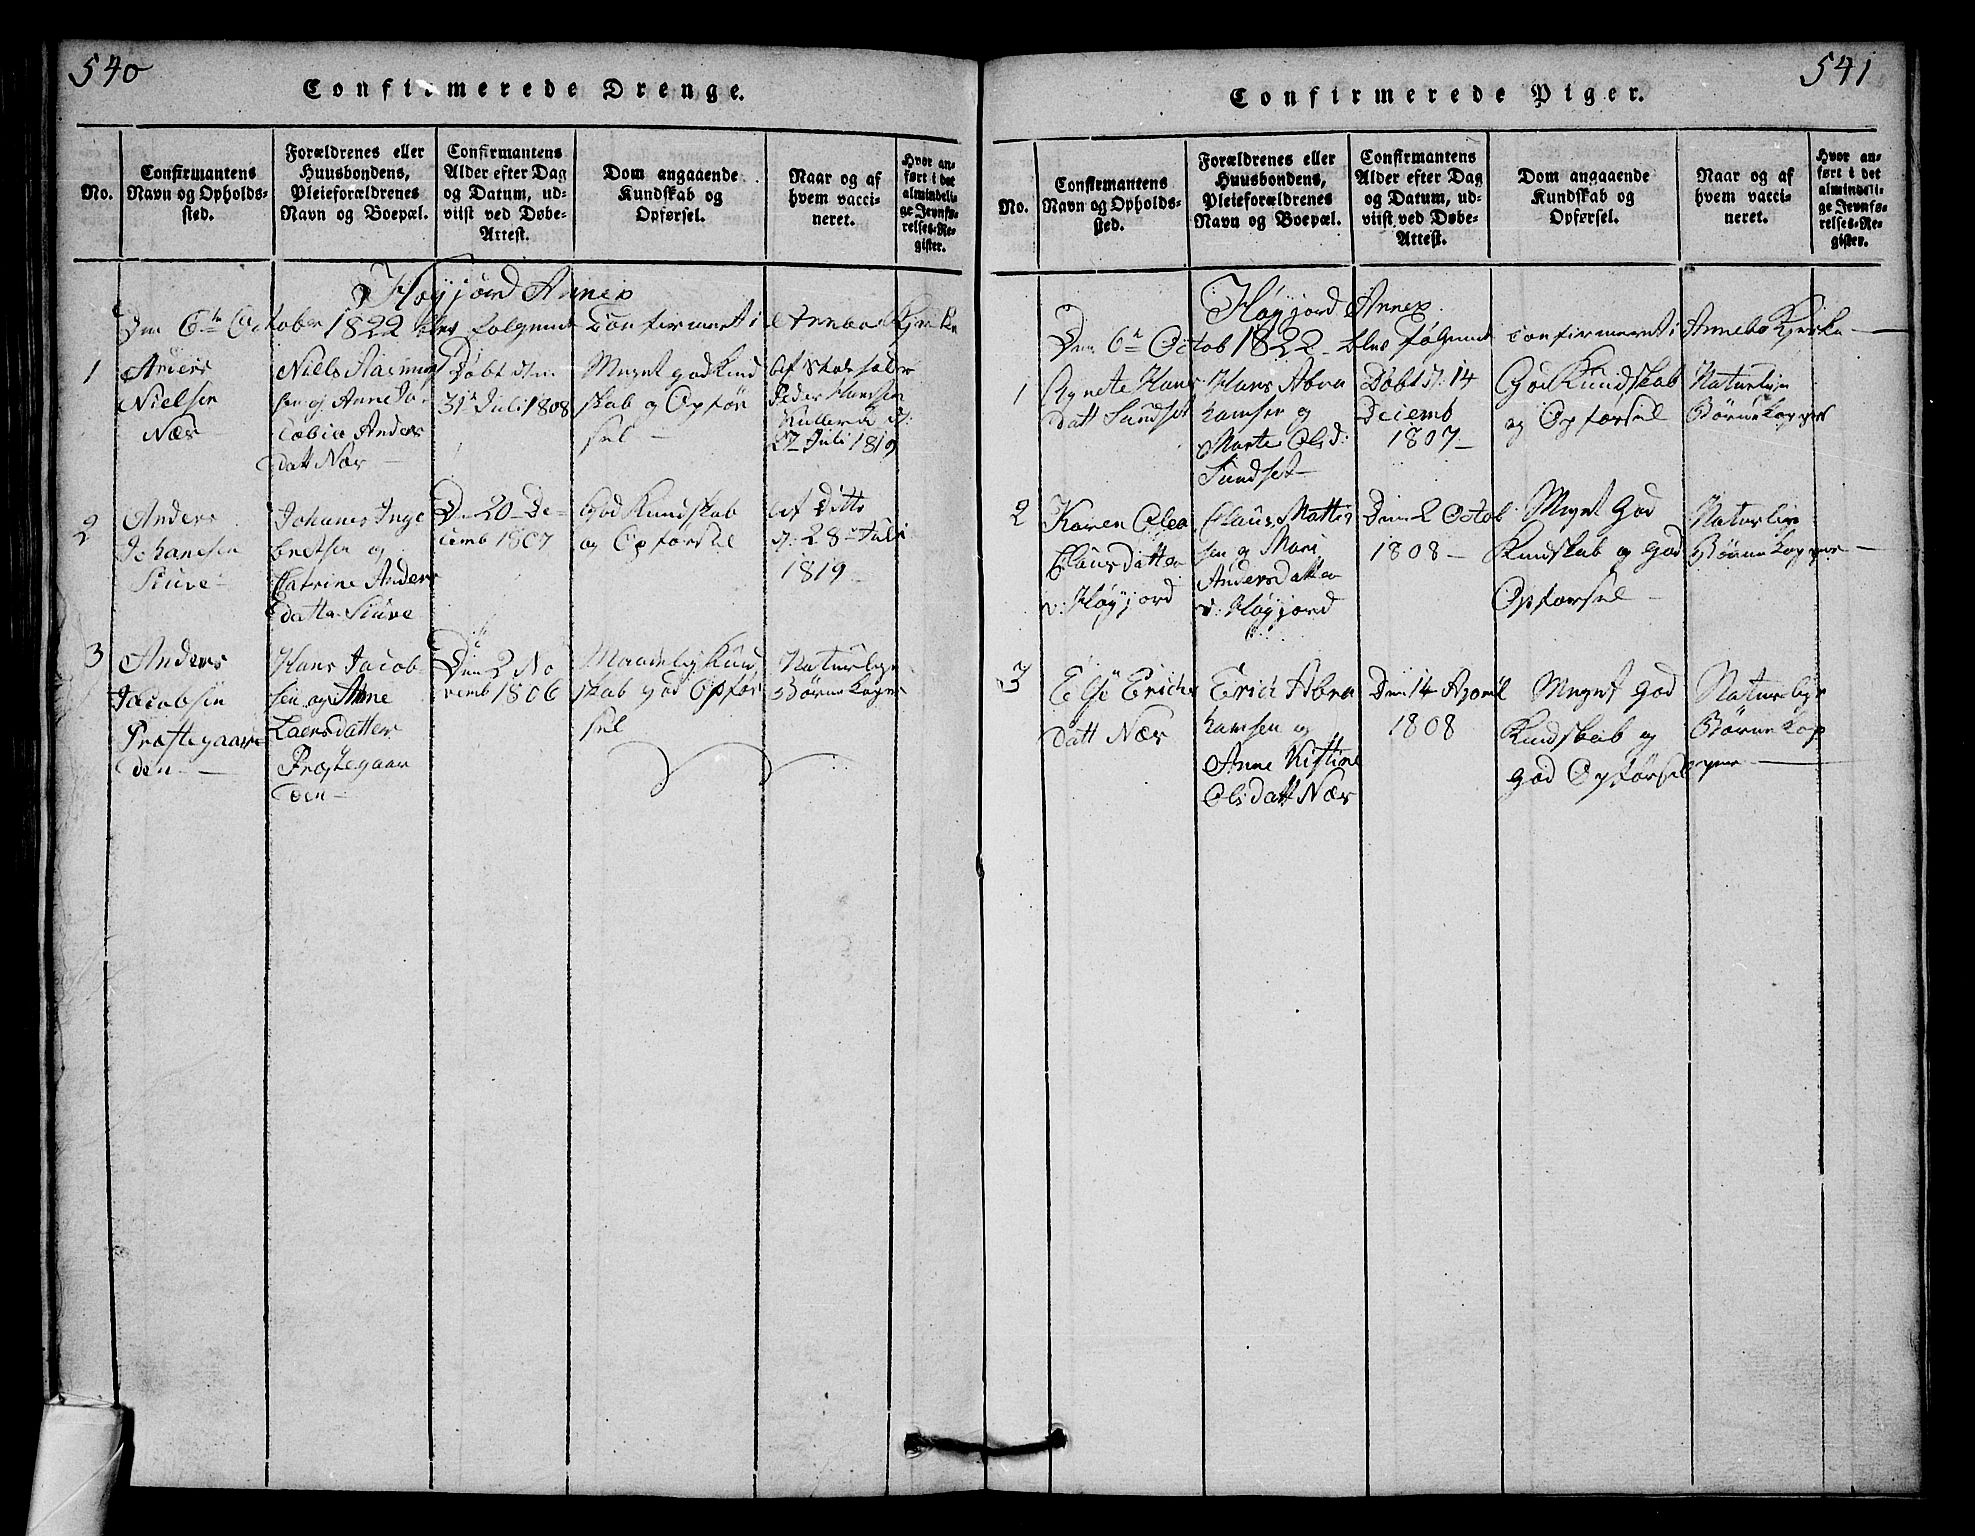 540
Confirmerede Drenge.
No.
Confirmantens
Navn og Opholds-
sted.
Forældrenes eller
Huusbondens,
Pleieforældrenes
Navn og Boepæl.
Confirmantens
Alder efter Dag
og Datum, ud-
viist ved Døbe-
Attest.
Dom angaaende
Kundskab og
Opførsel.
Naar og af
hvem vacci-
neret.
Hvor an-
ført i det
almindeli-
ge Jevnfø-
relses-Re-
gister.
Høyjord Annex
Den 6te October 1822 blev følgende Confirmeret i Arnebo Kjerke
1
Anders
Nielsen
Nær
Niels Rasmus
sen og Anne Ja-
cobia Anders
datt Nær
Døbt den
31te Juli 1808
Meget god Kund
skab og Opfør
sel
Af Skoeholder
Peder Hansen
d:
27 Juli 1819
2
Anders
Johanesen
Stuve
Johanes Inge
bretsen og
Catrine Anders
datter Stuve
Den 20 De-
cemb 1807
God Kundskab
og Opførsel
Af Ditto
d: 28de Juli
1819
3
Anders
Jacobsen
Præstegaar
den
Hans Jacob
sen og Anne
Laersdatter
Præstegaar
den
Den 2 No
vemb 1806
Maadelig Kund
skab god Opfør
sel
Naturlige
Børnekopper
541
Confirmerede Piger.
No.
Confirmantens
Navn og Opholds-
sted.
Forældrenes eller
Huusbondens,
Pleieforældrenes
Navn og Boepæl.
Confirmantens
Alder efter Dag
og Datum, ud-
viist ved Døbe-
Attest.
Dom angaaende
Kundskab og
Opførsel.
Naar og af
hvem vacci-
neret.
Hvor an-
ført i det
almindeli-
ge Jevnfø-
relses-Re-
gister.
Høyjord Annex
Den 6te Octob 1822 blev følgende confirmeret i Annebo Kjerke
1
Agnete Hans
datt Sundset
Hans Abra
hamsen og
Marte Olsd:
Sundset
Døbt d: 14
Decemb
1807
God Kundskab
og Opførsel
Naturlige
Børnekopper
2
Karen Olea
Clausdatter
v: Høyjord
Claus Mattis
sen og Mari
Andersdatter
v: Høyjord
Den 2 Octob
1808
Meget God
Kundskab og God
Opførsel
Naturlige
Børnekopper
3
Else Erichs
datt Nær
Erich Abra
hamsen og
Anne Kistine
Olsdatt Nær
Den 14 April
1808
Meget God
Kundskab og
God Opførsel
Naturlige
Børnekop
per